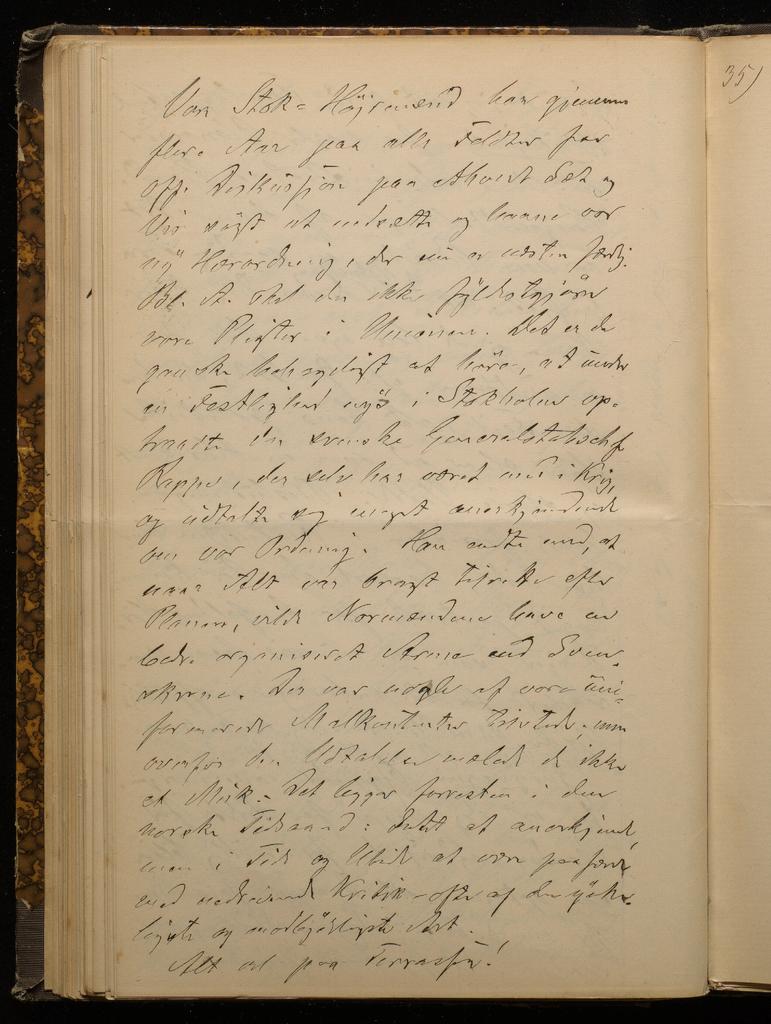 35)
Vore Stok-Højremænd har gjennem
flere Aar paa alle Feldter for
off. Diskusjon paa ethvert Sæt og
Vis søgt at nedsætte og haane vor
ny Hærordning, der nu er næsten færdig.
Bl. A. skal den ikke fyldestgjøre
vore Pligter i Unionen. Det er da
ganske behageligt at høre, at under
en Festlighed nys i Stokholm op-
traadte den svenske Generalstabschef
Rappe, der selv har været med i Krig,
og udtalte sig meget anerkjendende
om vor Ordning. Han endte med, at
naar Alt var bragt tilrette efter
Planen, vilde Normændene have en
bedre organiseret Arme end Sven-
skerne. Der var nogle af vore uni-
formerede Malkontenter tilstede, men
overfor den Udtalelse mælede de ikke
et Muk. Det ligger forresten i den
norske Tidsaand: Intet at anerkjende,
men i Tide og Utide at være paafærde
med nedrivende Kritik - ofte af den
ligste og modbydeligste Art.
Alt vel paa Terrassen!